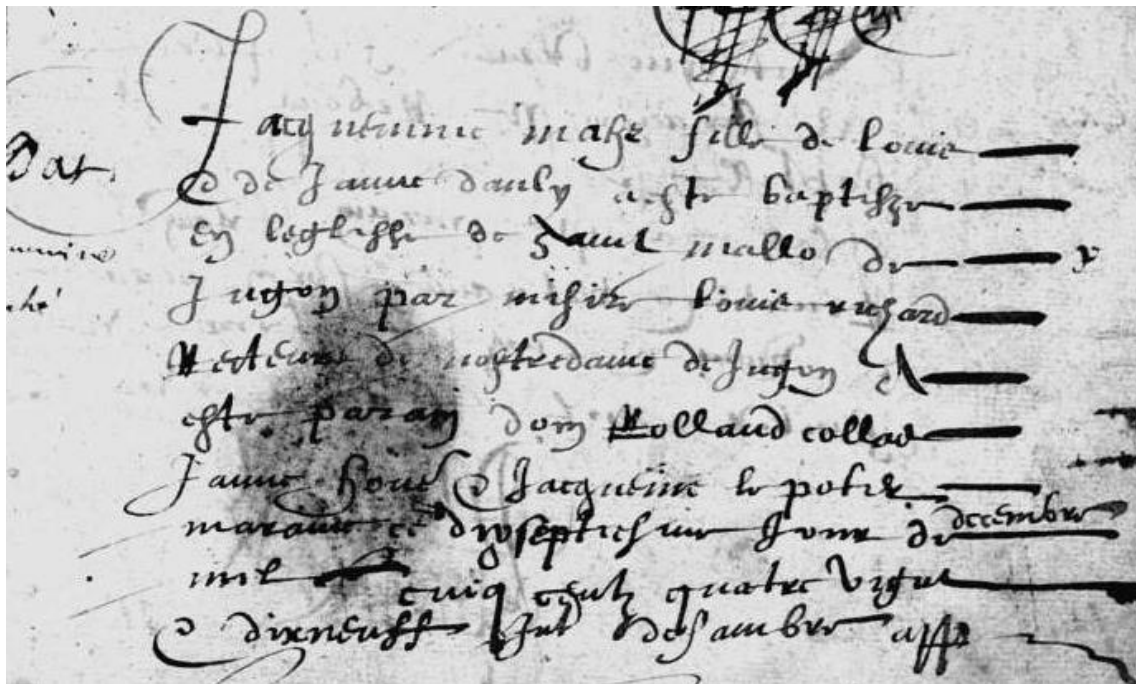 Bat
Jacquemine mahe fille de louis
& de Janne dauly a este baptisee
en leglisse de Sainct mallo de
Jugon par misire louis richard
Recteur de nostredame de Jugon et
este parain dom Rolland collas
Janne houé & Jacquemine le potier
maraine ce dixseptiesme Jour de decembre
mil cinq centz quatre vignt
& dixneuff desambre